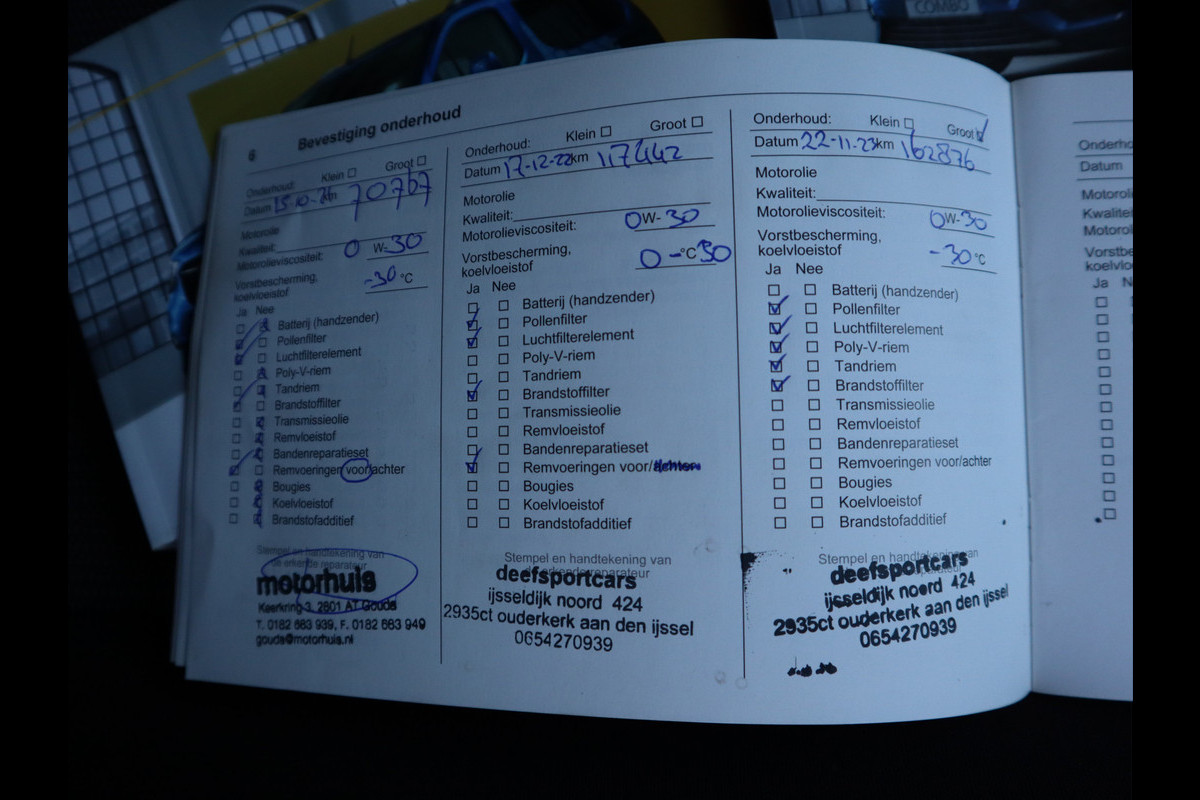 COMBO
6 Bevestiging onderhoud
Onderhoud: Klein Groot
Datum 15-10- 70767
Motorolie
Kwaliteit:
Motorolieviscositeit: 0 W-30
Vorstbescherming,
koelvloeistof -30 °C
Ja Nee
Batterij (handzender)
Pollenfilter
Luchtfilterelement
Poly-V-riem
Tandriem
Brandstoffilter
Transmissieolie
Remvloeistof
Bandenreparatieset
Remvoeringen voor/achter
Bougies
Koelvloeistof
Brandstofadditief
Stempel en handtekening van
de erkende reparateur
motorhuis
Keerkring 3, 2801 AT Gouda
T. 0182 683 939, F. 0182 683 949
gouda@motorhuis.nl
Onderhoud: Klein Groot
Datum 17-12-22 km 117442
Motorolie
Kwaliteit:
Motorolieviscositeit: 0W-30
Vorstbescherming,
koelvloeistof 0-°C 30
Ja Nee
Batterij (handzender)
Pollenfilter
Luchtfilterelement
Poly-V-riem
Tandriem
Brandstoffilter
Transmissieolie
Remvloeistof
Bandenreparatieset
Remvoeringen voor/achter
Bougies
Koelvloeistof
Brandstofadditief
Stempel en handtekening van
de erkende reparateur
deefsportcars
ijsseldijk noord 424
2935ct ouderkerk aan den ijssel
0654270939
Onderhoud: Klein Groot
Datum 22-11-23 km 162876
Motorolie
Kwaliteit:
Motorolieviscositeit: 0W-30
Vorstbescherming,
koelvloeistof -30 °C
Ja Nee
Batterij (handzender)
Pollenfilter
Luchtfilterelement
Poly-V-riem
Tandriem
Brandstoffilter
Transmissieolie
Remvloeistof
Bandenreparatieset
Remvoeringen voor/achter
Bougies
Koelvloeistof
Brandstofadditief
Stempel en handtekening van
deefsportcars
ijsseldijk noord 424
2935ct ouderkerk aan den ijssel
0654270939
Onderho
Datum
Motoroli
Kwaliteit
Motorol
Vorstbe
koelvlo
Ja N